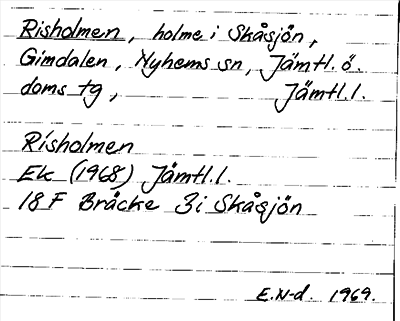 Risholmen, holme i Skåsjön,
Gimdalen, Nyhems sn, Jämtl. ö.
doms tg, Jämtl. l.
Risholmen
Ek (1968) Jämtl. l.
18 F Bräcke 3i Skåsjön
E.N-d. 1969.